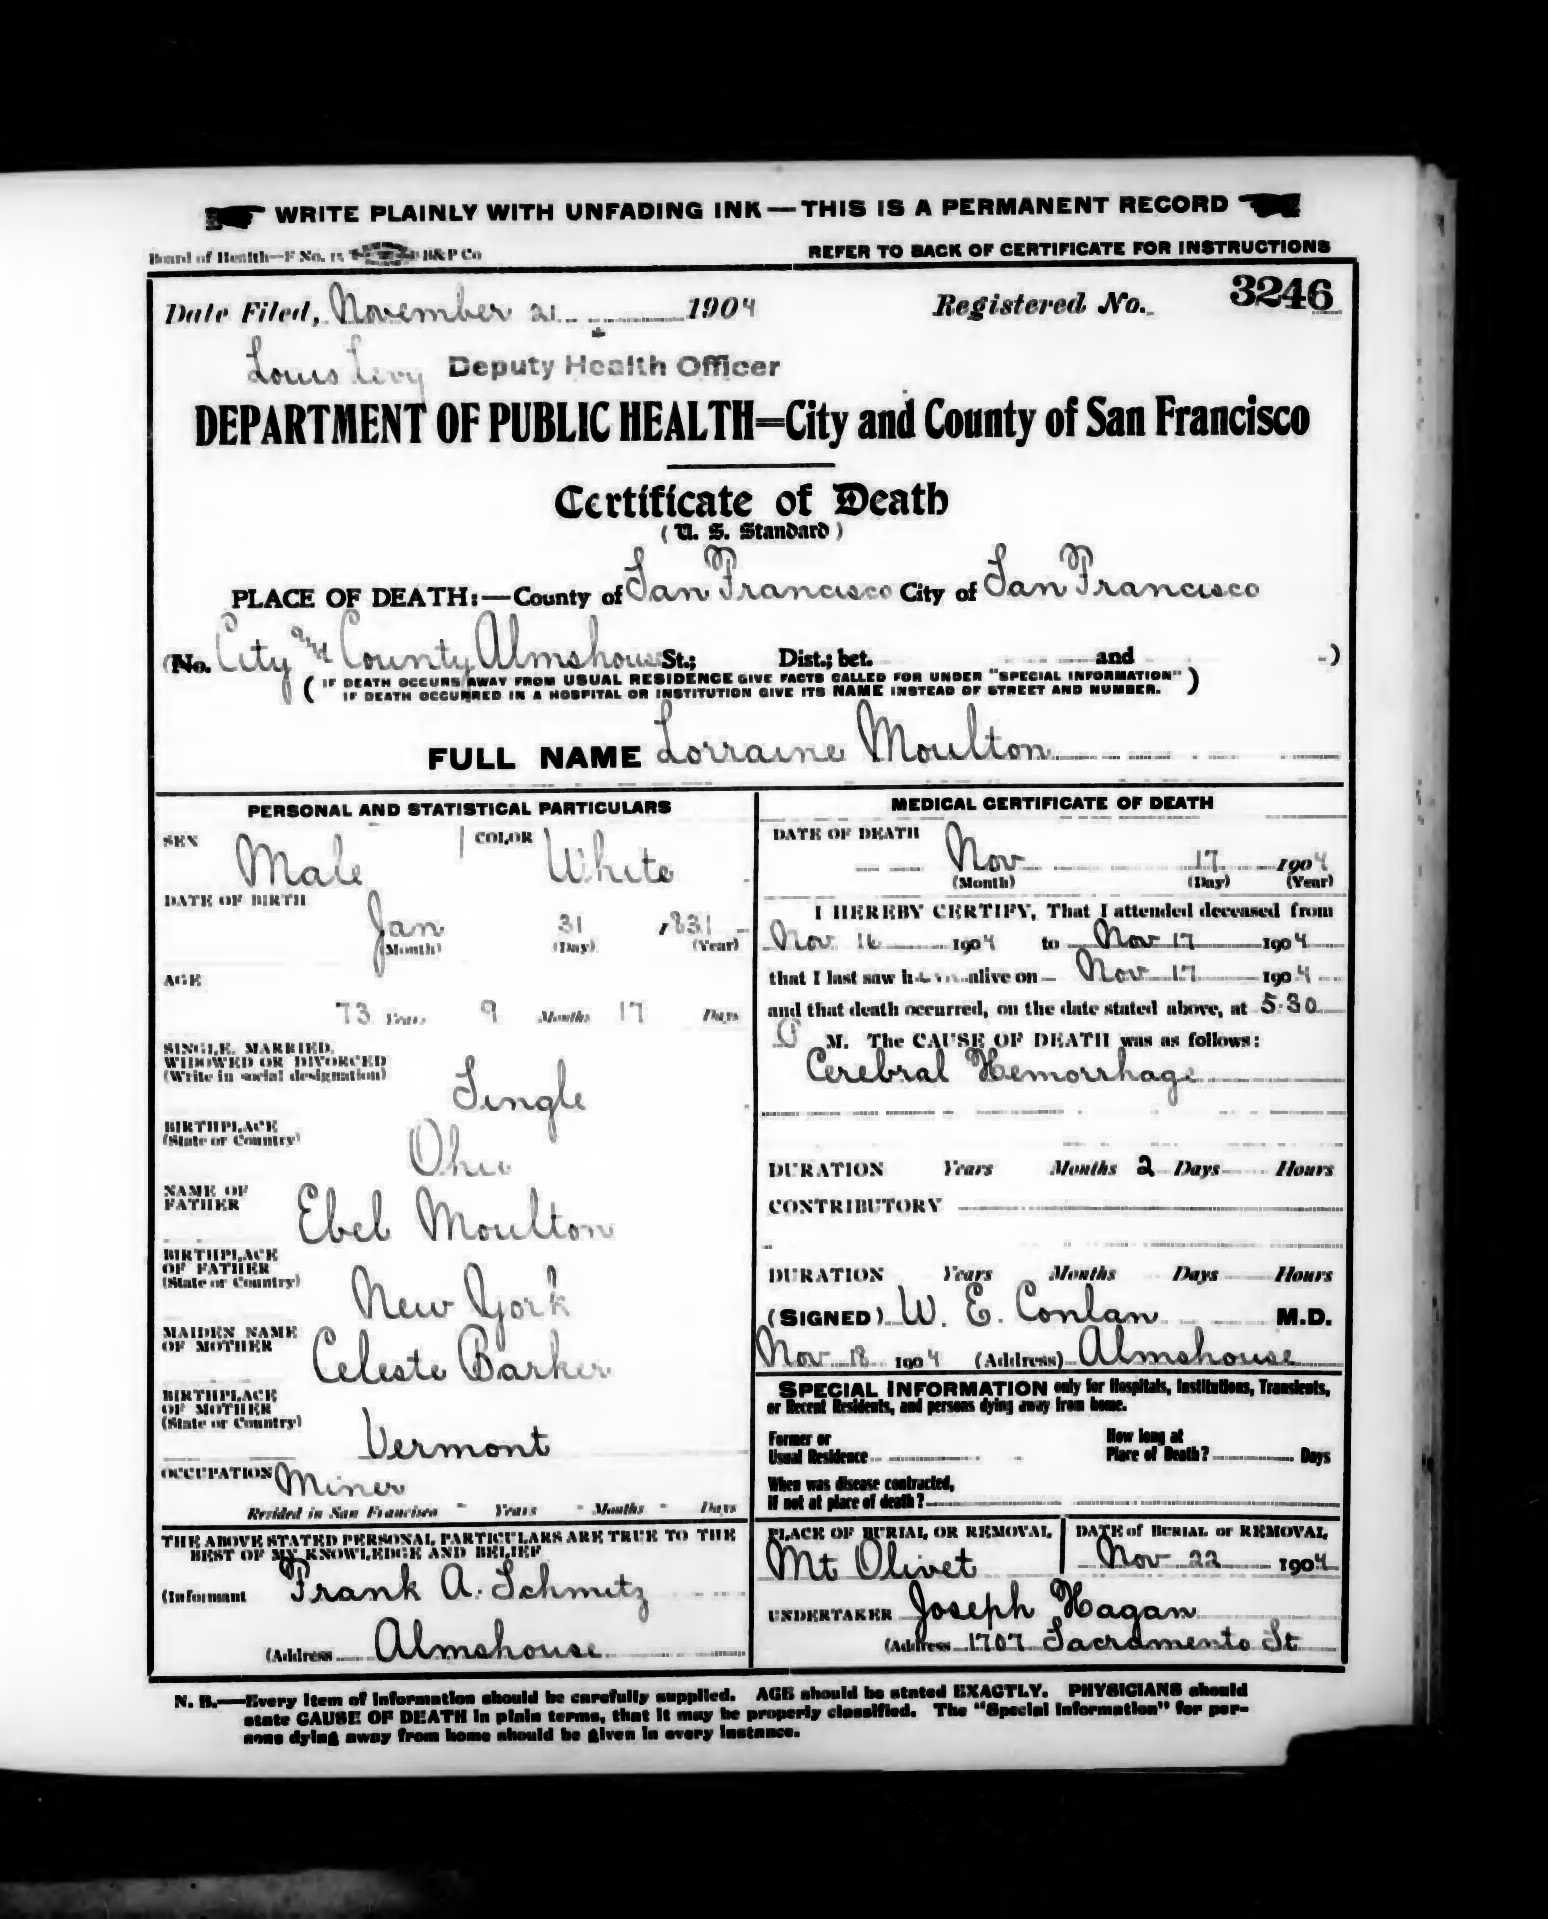 WRITE PLAINLY WITH UNFADING INK—THIS IS A PERMANENT RECORD
Board of Health—F No. 15 B&P Co REFER TO BACK OF CERTIFICATE FOR INSTRUCTIONS
Date Filed, November 21 1904 Registered No. 3246
Louis Levy Deputy Health Officer
DEPARTMENT OF PUBLIC HEALTH=City and County of San Francisco
Certificate of Death
(U. S. Standard)
PLACE OF DEATH:—County of San Francisco City of San Francisco
(No. City and County Almshouse St.; Dist.; bet. and )
(IF DEATH OCCURS AWAY FROM USUAL RESIDENCE GIVE FACTS CALLED FOR UNDER "SPECIAL INFORMATION"
IF DEATH OCCURRED IN A HOSPITAL OR INSTITUTION GIVE ITS NAME INSTEAD OF STREET AND NUMBER.)
FULL NAME Lorraine Moulton
PERSONAL AND STATISTICAL PARTICULARS
SEX Male COLOR White
DATE OF BIRTH
Jan 31 1831
(Month) (Day) (Year)
AGE
73 Years 9 Months 17 Days
SINGLE, MARRIED,
WIDOWED OR DIVORCED
(Write in social designation)
Single
BIRTHPLACE
(State or Country)
Ohio
NAME OF
FATHER
Ebel Moulton
BIRTHPLACE
OF FATHER
(State or Country)
New York
MAIDEN NAME
OF MOTHER
Celeste Barker
BIRTHPLACE
OF MOTHER
(State or Country)
Vermont
OCCUPATION Miner
Resided in San Francisco - Years - Months - Days
THE ABOVE STATED PERSONAL PARTICULARS ARE TRUE TO THE
BEST OF MY KNOWLEDGE AND BELIEF
(Informant Frank A. Schmitz
(Address Almshouse
MEDICAL CERTIFICATE OF DEATH
DATE OF DEATH
Nov 17 1904
(Month) (Day) (Year)
I HEREBY CERTIFY, That I attended deceased from
Nov 16 1904 to Nov 17 1904
that I last saw him alive on Nov 17 1904
and that death occurred, on the date stated above, at 5.30
P M. The CAUSE OF DEATH was as follows:
Cerebral Hemorrhage
DURATION Years Months 2 Days Hours
CONTRIBUTORY
DURATION Years Months Days Hours
(SIGNED) W. E. Conlan M.D.
Nov 18 1904 (Address) Almshouse
SPECIAL INFORMATION only for Hospitals, Institutions, Transients,
or Recent Residents, and persons dying away from home.
Former or
Usual Residence
How long at
Place of Death? Days
When was disease contracted,
If not at place of death?
PLACE OF BURIAL OR REMOVAL
Mt Olivet
DATE of BURIAL or REMOVAL
Nov 22 1904
UNDERTAKER Joseph Hagan
(Address 1707 Sacramento St
N. B.—Every item of information should be carefully supplied. AGE should be stated EXACTLY. PHYSICIANS should
state CAUSE OF DEATH in plain terms, that it may be properly classified. The "Special Information" for per-
sons dying away from home should be given in every instance.